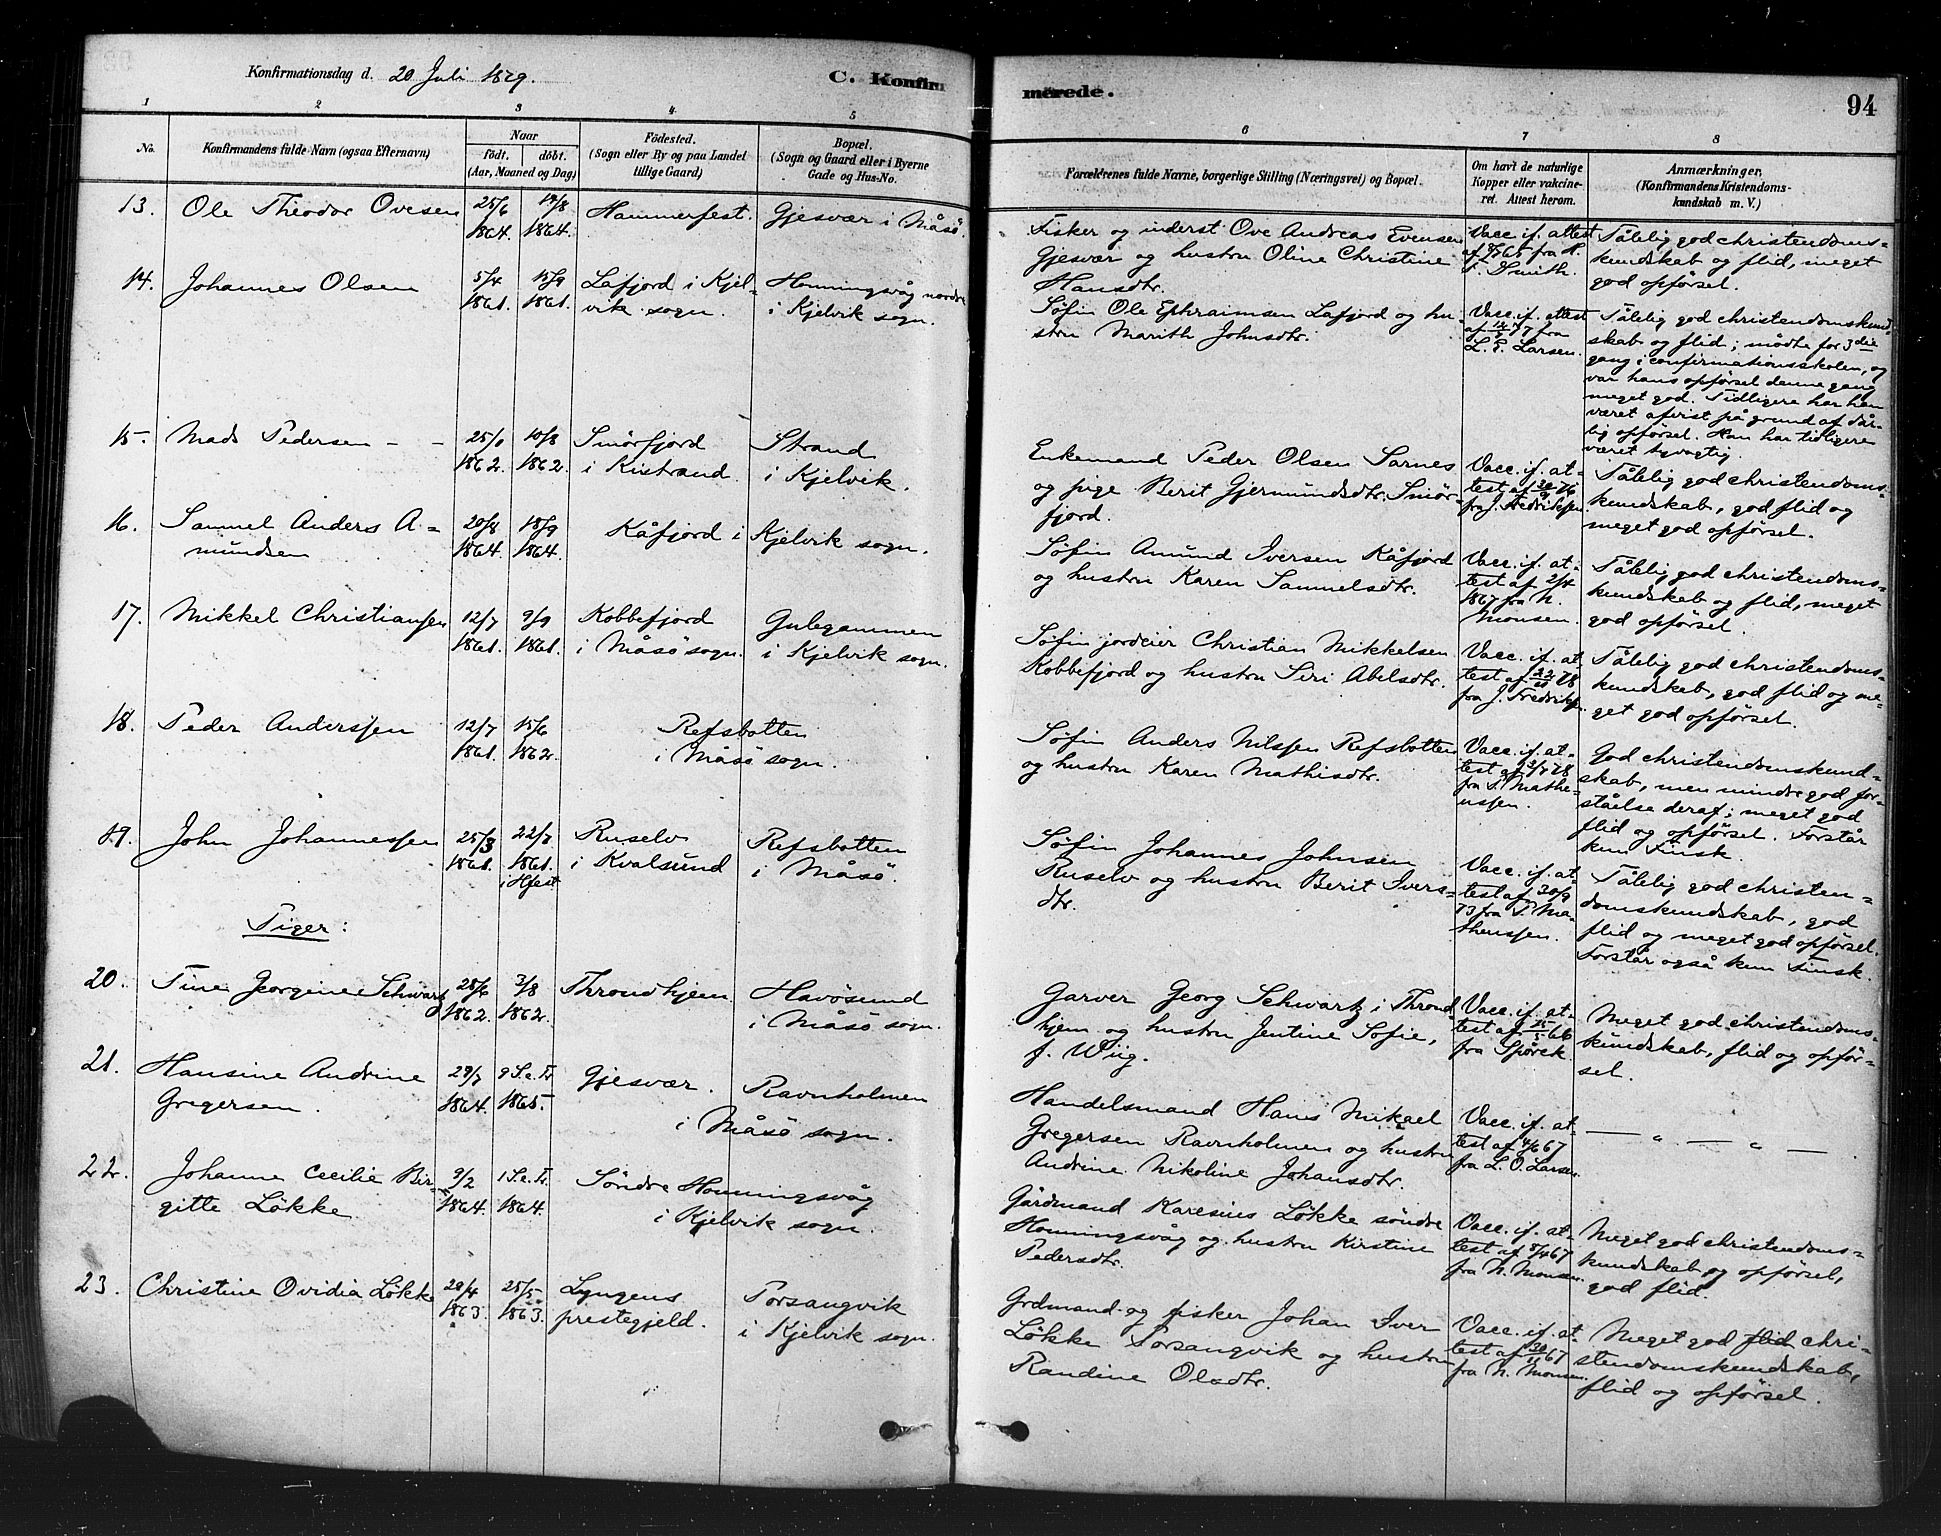 Konfirmationsdag d. 20 Juli 1879.
C. Konfirmerede.
94
1 2 3 4 5 6 7 8
No.
Konfirmandens fulde Navn (ogsaa Efternavn)
Naar
født. døbt.
(Aar, Maaned og Dag)
Fødested.
(Sogn eller By og paa Landet
tillige Gaard)
Bopæl.
(Sogn og Gaard eller i Byerne
Gade og Hus-No.
Forældrenes fulde Navne, borgerlige Stilling (Næringsvei) og Bopæl.
Om havt de naturlige
Kopper eller vakcine-
ret. Attest herom.
Anmærkninger,
(Konfirmandens Kristendoms-
kundskab m. V.)
13. Ole Theodor Ovesen
25/6 1864.
14/8 1864.
Hammerfest.
Gjesvær i Måsö.
Fisker og inderst Ove Andreas Evensen
Gjesvær og hustru Oline Christine
Hansdtr.
Vacc. if. attest
fra H.
Smith.
Tålelig god christendoms-
kundskab og flid, meget
god opførsel.
14. Johannes Olsen
5/4 1861.
15/9 1861.
Lafjord i Kjel-
vik sogn.
Honningsvåg nordre
i Kjelvik sogn.
Søfin Ole Ephraimsen Lafjord og hu-
stru Marith Johnsdtr.
Vacc. if. attest
af 77 fra
L. E. Larsen.
Tålelig god christendomskund-
skab og flid; mødte for 3die
gang i confirmationsskolen, og
var hans opførsel denne gang
meget god. Tidligere har han
været afvist på grund af dår-
lig opførsel. Han har tidligere
været tyvagtig.
15. Mads Pedersen - -
1862.
10/8 1862.
Smörfjord
i Kistrand.
Strand
i Kjelvik.
Enkemand Peder Olsen Sarnes
og pige Berit Gjermundsdtr. Smör-
fjord.
Vacc. if. at-
test af 76
fra J. Fredriksen.
Tålelig god christendoms-
kundskab, god flid og
meget god opførsel.
16. Samuel Anders A-
mundsen
20/8 1864.
18/9 1864.
Kåfjord i Kjelvik sogn.
Søfin Amund Iversen Kåfjord
og hustru Karen Samuelsdtr.
Vacc. if. at-
test af 2/4
1867 fra N.
Monsen.
Tålelig god christendoms-
kundskab og flid, meget
god opførsel.
17. Mikkel Christiansen
12/7 1861.
9/9 1861.
Kobbefjord
i Måsö sogn.
Gulegammen
i Kjelvik sogn.
Søfin jordeier Christian Mikkelsen
Kobbefjord og hustru Siri Abelsdtr.
Vacc. if. at-
test af 22/10 78
fra J. Fredriksen.
Tålelig god christendoms-
kundskab, god flid og me-
get god opførsel.
18. Peder Anderssen
12/7 1861.
15/6 1862.
Refsbotten
i Måsö sogn.
Søfin Anders Nilssen Refsbotten
og hustru Karen Mathisdtr.
Vacc. if. at-
test af 3/7 78
fra P. Mathe-
ussen.
God christendomskund-
skab, men mindre god for-
ståelse deraf; meget god
flid og opførsel. Forstår
kun Finsk.
19. John Johannessen
25/3 1861.
22/7 1861.
i Hfest
Ruselv
i Kvalsund
Refsbotten
i Måsö.
Søfin Johannes Johnsen
Ruselv og hustru Berit Ivers-
dtr.
Vacc. if. at-
test af 30/9
73 fra P. Ma-
theussen.
Tålelig god christen-
domskundskab, god
flid og meget god opførsel.
Forstår også kun Finsk.
Piger:
20. Tine Georgine Schwartz
28/6 1862.
3/8 1862.
Throndhjem.
Havösund
i Måsö sogn.
Garver Georg Schwartz i Thrond-
hjem og hustru Jentine Sofie,
f. Wiig.
Vacc. if. at-
test af 15/5 66
fra Spörck.
Meget god christendoms-
kundskab, flid og opfør-
sel.
21. Hansine Andrine
Gregersen.
29/7 1864.
9 S. e. Tr. 1865.
Gjesvær.
Ravnholmen
i Måsö sogn.
Handelsmand Hans Mikael
Gregersen Ravnholmen og hustru
Andrine Nikoline Johansdtr.
Vacc. if. at-
test af 4/6 67
fra L. O. Larsen.
— " — " —
22. Johanne Cecilie Bir-
gitte Løkke
9/2 1864.
1 S. e. Tr. 1864.
Söndre Honningsvåg
i Kjelvik sogn.
Gårdmand Karesius Løkke söndre
Honningsvåg og hustru Kirstine
Pedersdtr.
Vacc. if. at-
test af 67
fra N. Monsen.
Meget god christendoms-
kundskab og opførsel,
god flid.
23. Christine Ovidia Løkke
29/4 1863.
25/5 1863.
Lyngens
prestegjeld.
Porsangvik
i Kjelvik sogn.
Grdmand og fisker Johan Iver
Løkke Porsangvik og hustru
Randine Olsdtr.
Vacc. if. at-
test af 67
fra N. Monsen.
Meget god flid chri-
stendomskundskab,
flid og opførsel.